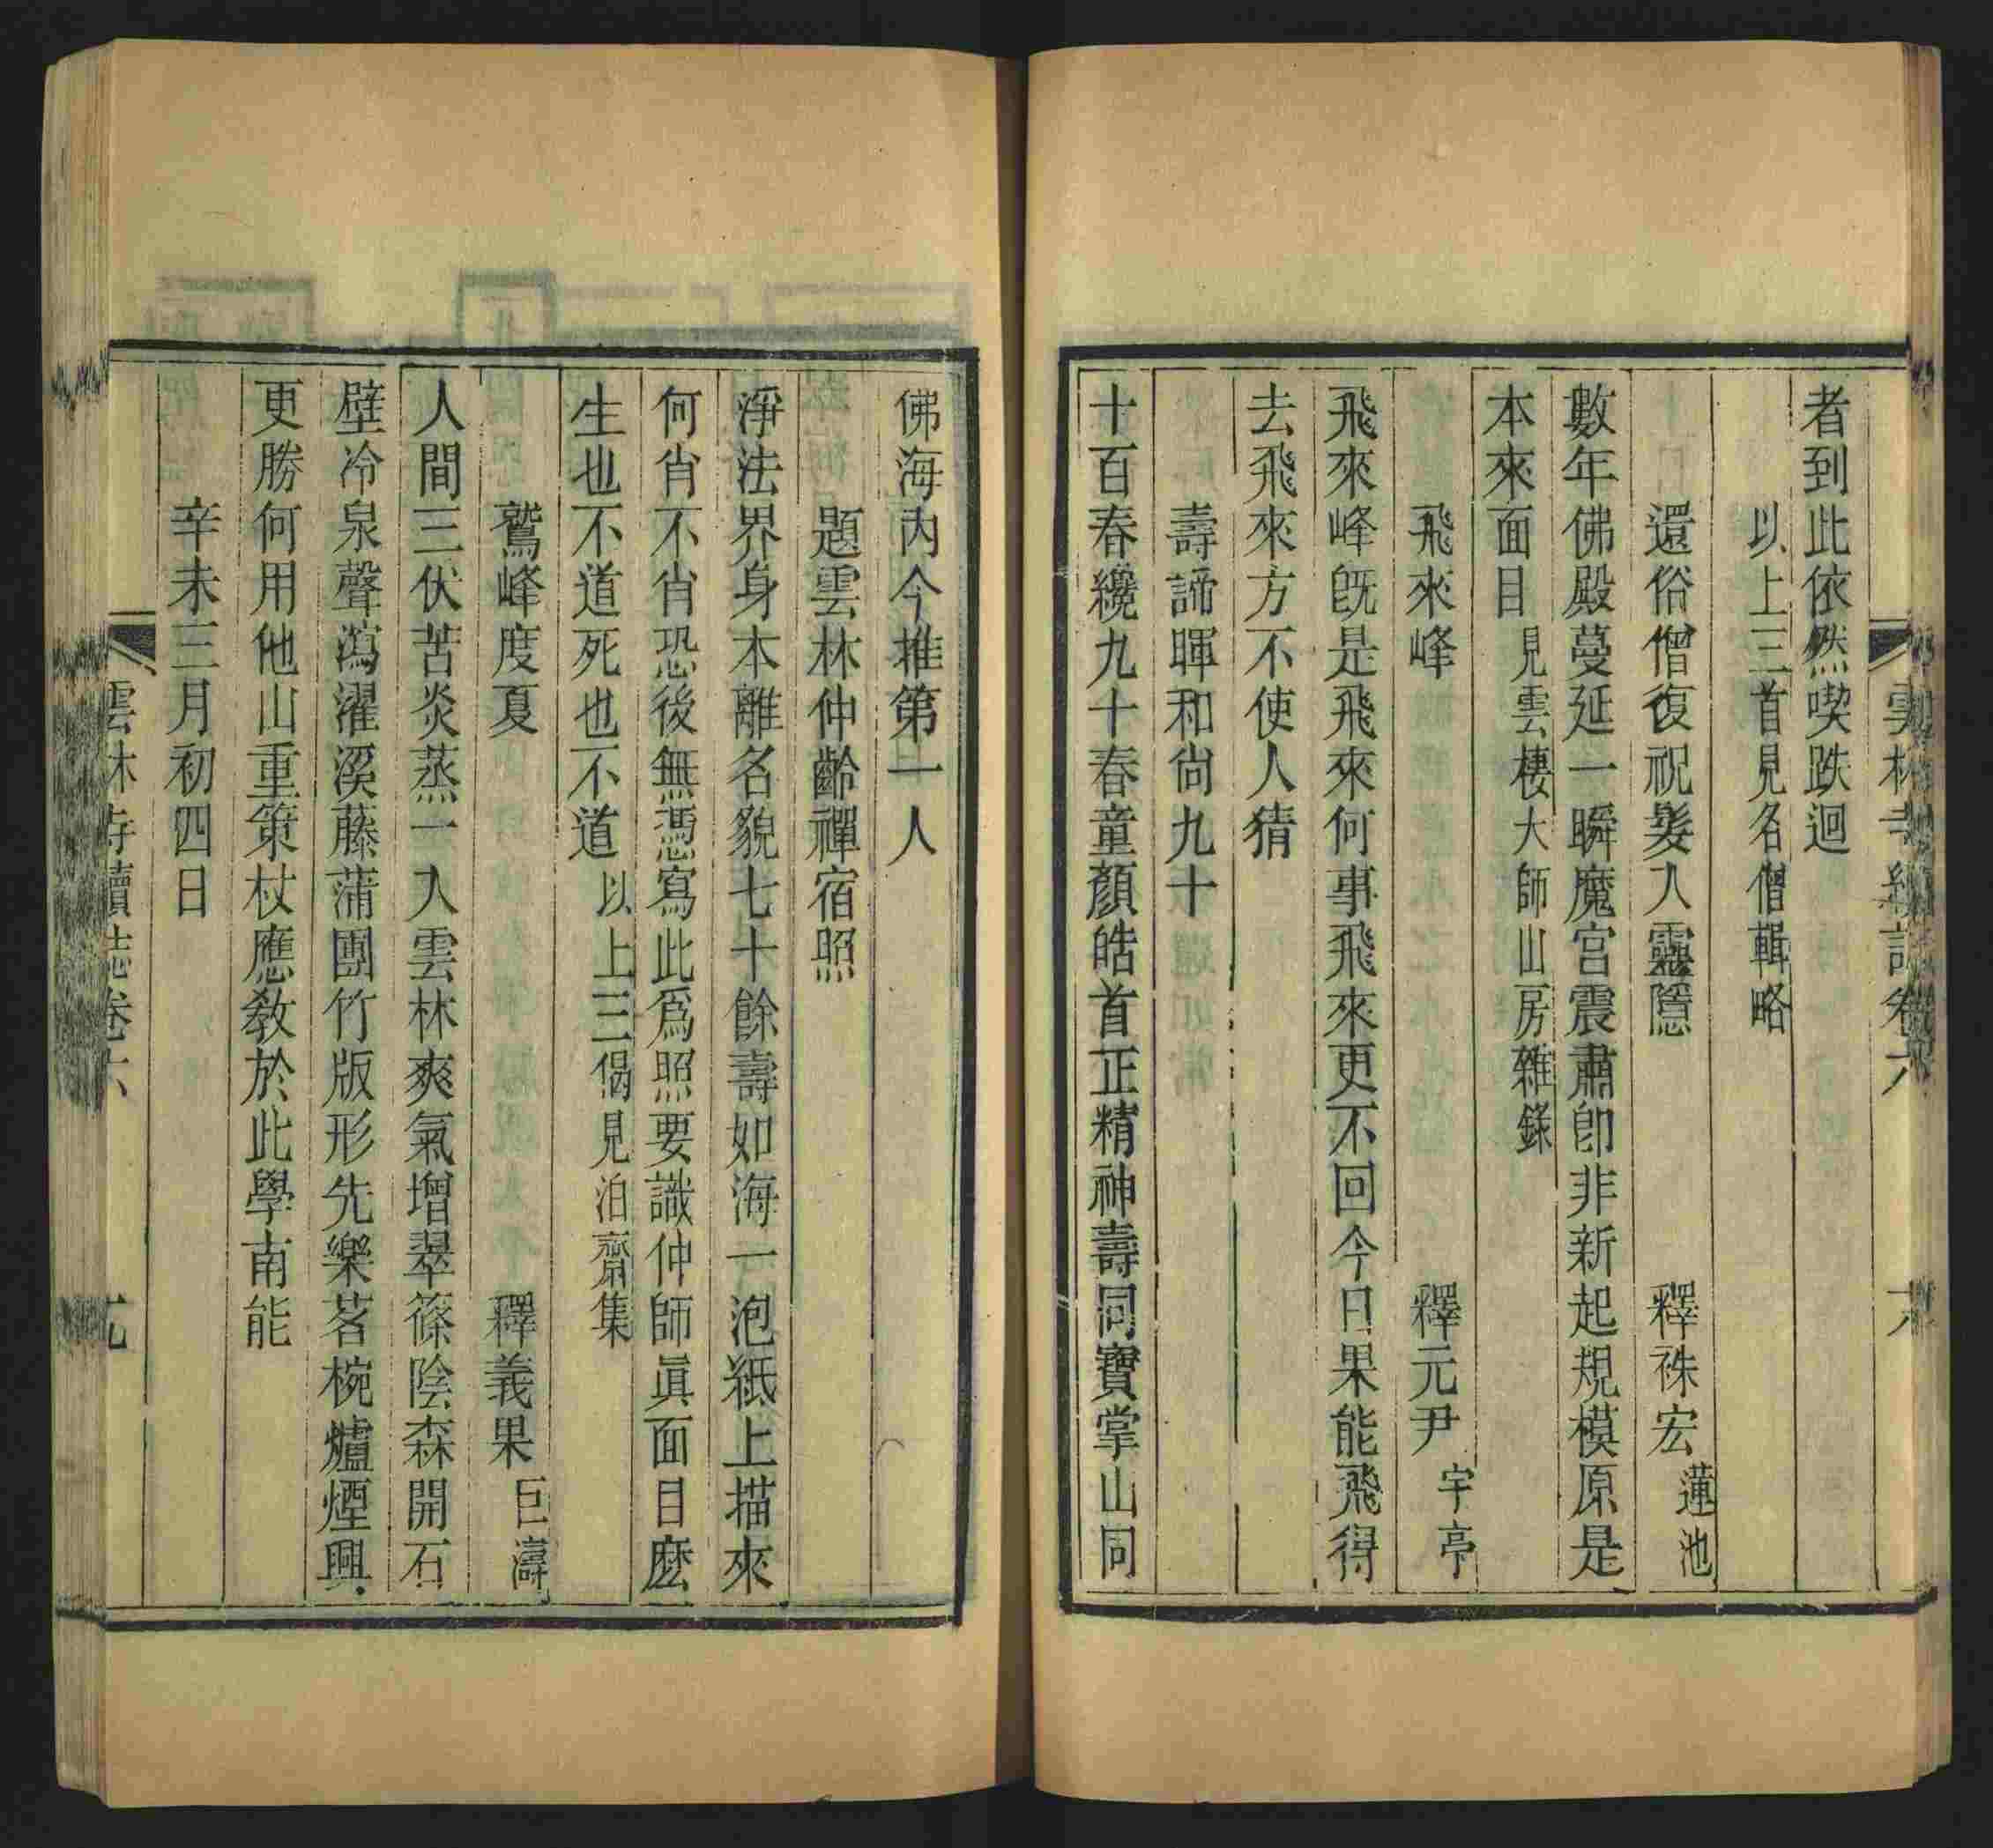 雲林寺續誌卷六
六
者到此依然喫跌迴
以上三首見名僧輯略
還俗僧復祝髮入靈隱
釋祩宏蓮池
數年佛殿蔓延一瞬魔宮震肅卽非新起規模原是
本來面目見雲棲大師山房雜錄
飛來峰
釋元尹宇亭
飛來峰旣是飛來何事飛來更不回今日果能飛得
去飛來方不使人猜
壽諦暉和尙九十
十百春纔九十春童顏皓首正精神壽同寶掌山同
佛海內今推第一人
題雲林仲齡禪宿照
淨法界身本離名貌七十餘壽如海一泡紙上描來
何肖不肖恐後無憑寫此爲照要識仲師眞面目麽
生也不道死也不道以上三偈見泊齋集
鷲峰度夏
釋義果巨濤
人間三伏苦炎蒸一入雲林爽氣增翠篠陰森開石
壁冷泉聲瀉濯溪藤蒲團竹版形先樂茗椀爐煙興
更勝何用他山重策杖應敎於此學南能
辛未三月初四日
雲林寺續誌卷六